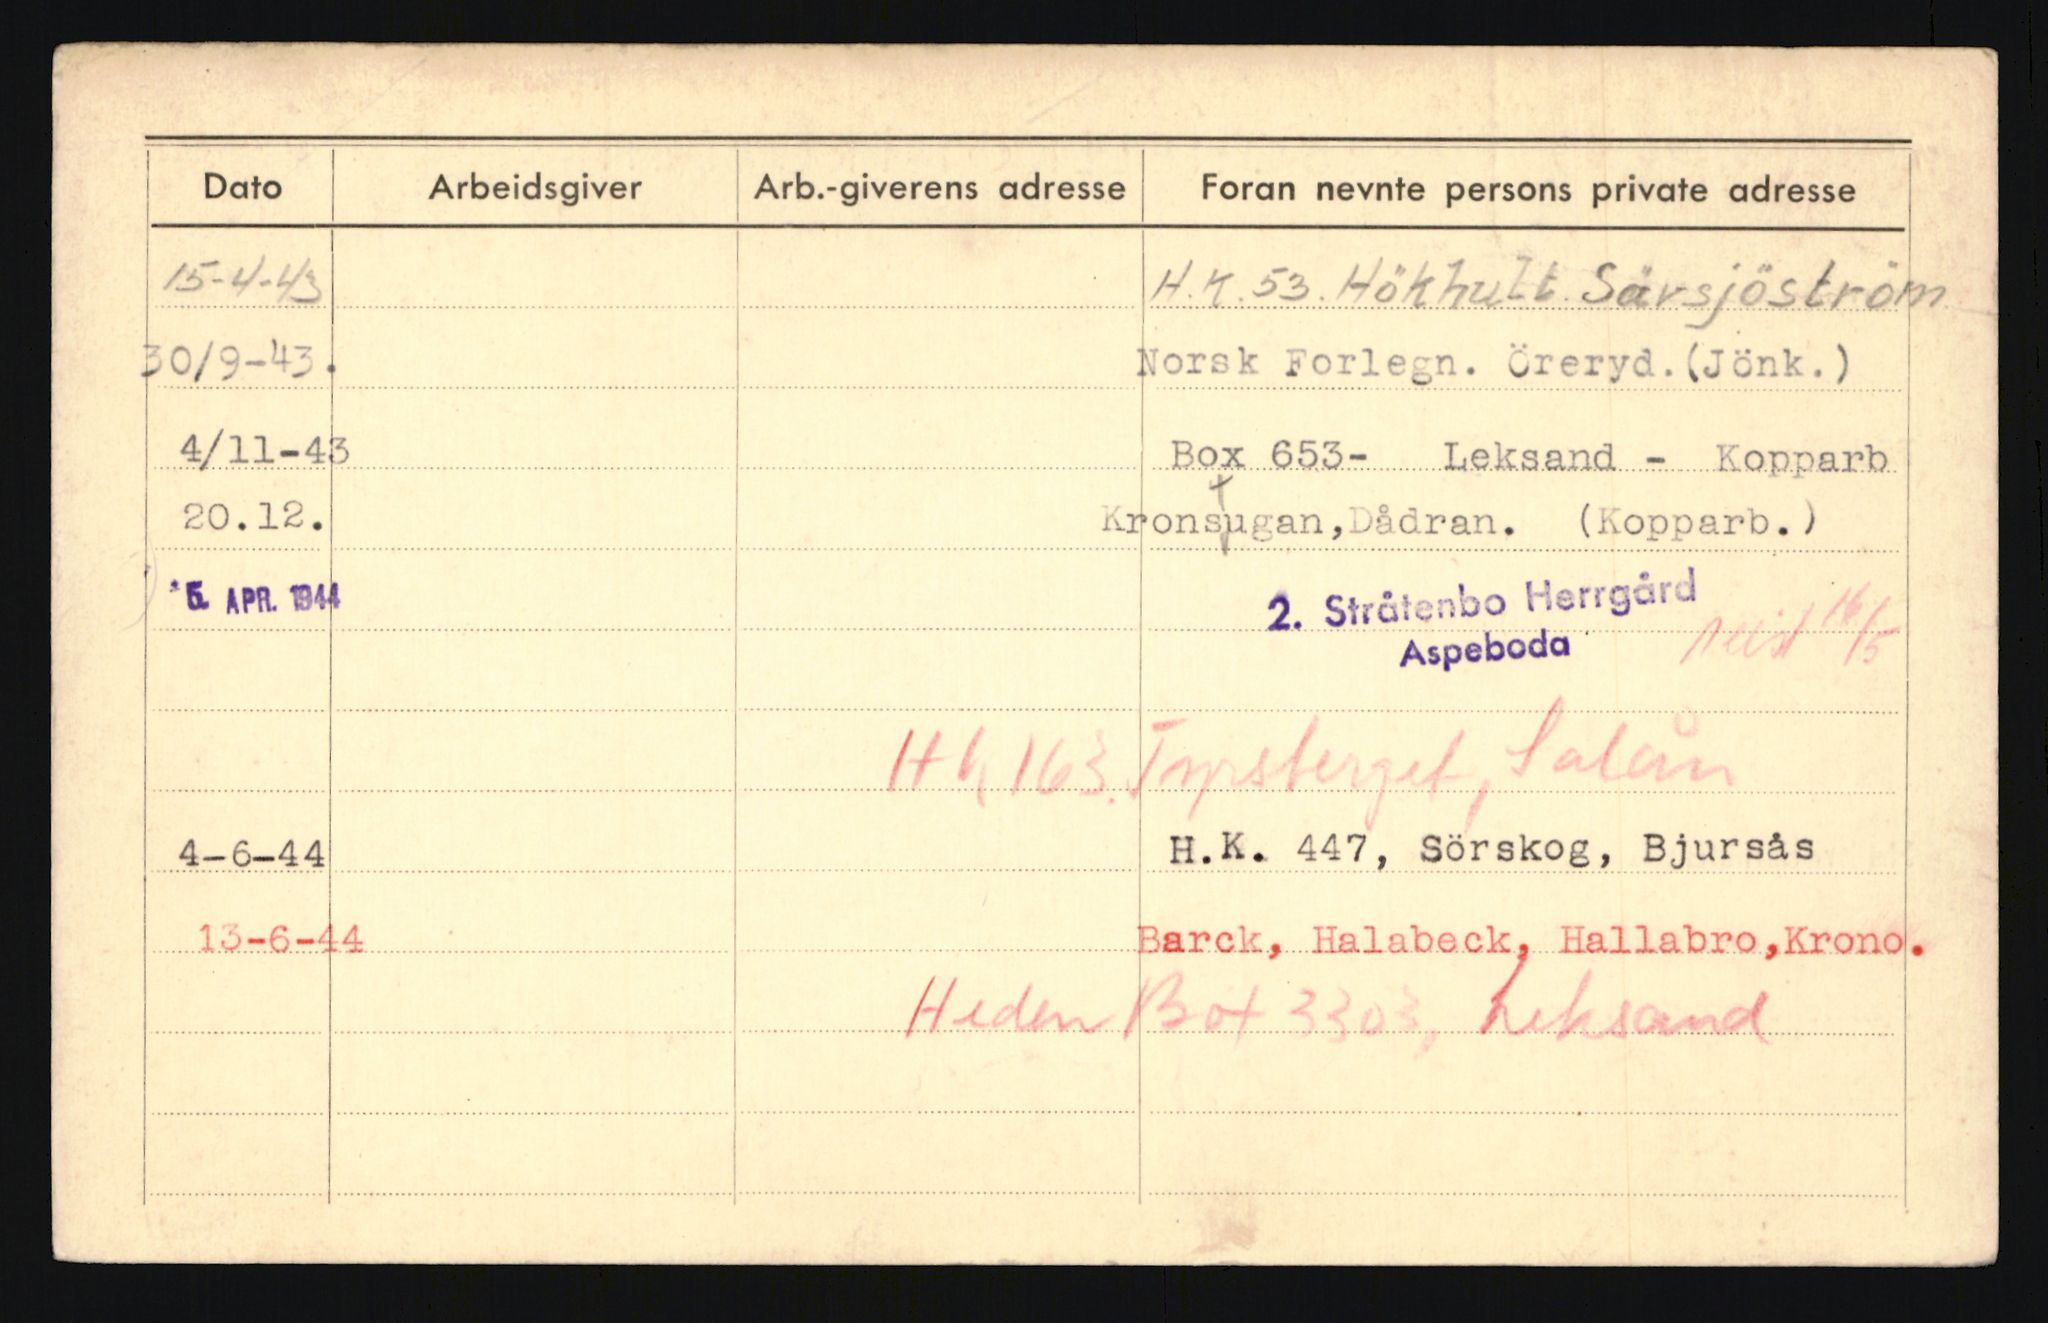 Dato Arbeidsgiver Arb.-giverens adresse Foran nevnte persons private adresse
15-4-43 H.K. 53. Hökhult Särsjöström
30/9-43. Norsk Forlegn. Öreryd.(Jönk.)
4/11-43 Box 653- Leksand - Kopparb
20.12. Kronstugan,Dådran. (Kopparb.)
5. APR. 1944 2. Stråtenbo Herrgård
Aspeboda reist 16/5
163. Tyrsberget,
4-6-44 H.K. 447, Sörskog, Bjursås
13-6-44 Barck, Halabeck, Hallabro,Krono.
Heden Box 3303, Leksand